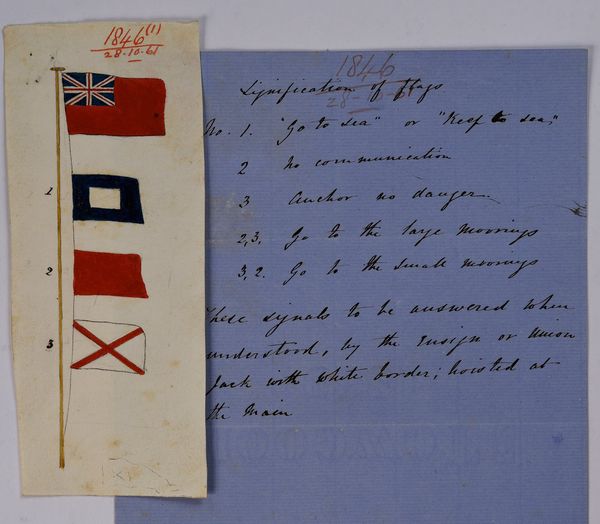 1846 (1)
28-10-61
1
2
3
1846
28-10-61
Signification of flags
No. 1. "Go to sea" or "Keep to sea"
2 No communication
3 Anchor no danger
2,3. Go to the large moorings
3,2. Go to the small moorings
These signals to be answered when
understood, by the Ensign or Union
Jack with white border; hoisted at
the Main